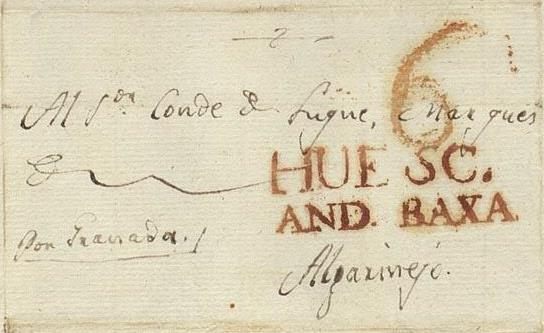 6
Al S.or Conde de Luque, Marques
de
HUESC.
AND. BAXA
Por Granada.
Algarinejo.